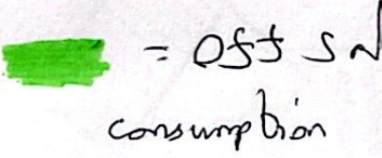 = Off SN
consumption